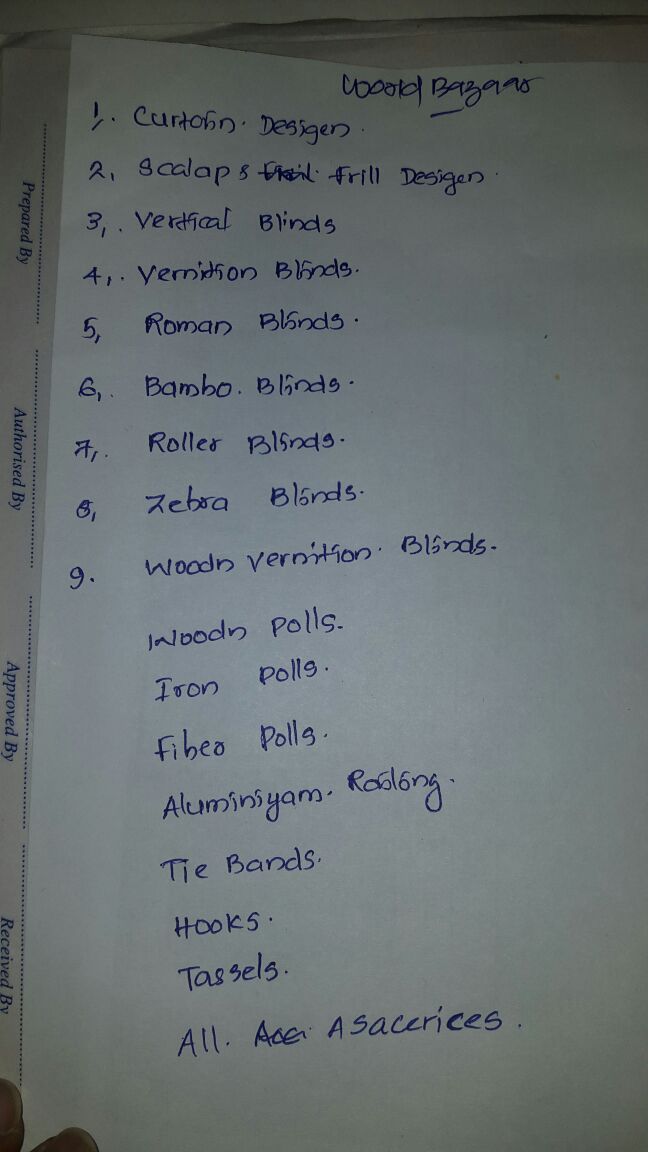 World Bazaar
1. Curtain. Desigen.
2, Scalap & frill Desigen.
3,. Vertical Blinds
4,. Vernition Blinds.
5, Roman Blinds.
6,. Bambo. Blinds.
7,. Roller Blinds.
8, Zebra Blinds.
9. Woodn Vernition. Blinds.
Woodn Polls.
Iron Polls.
Fiber Polls.
Aluminiyam. Roiling.
Tie Bands.
Hooks.
Tassels.
All. Asaccrices.
Prepared By
Authorised By
Approved By
Received By